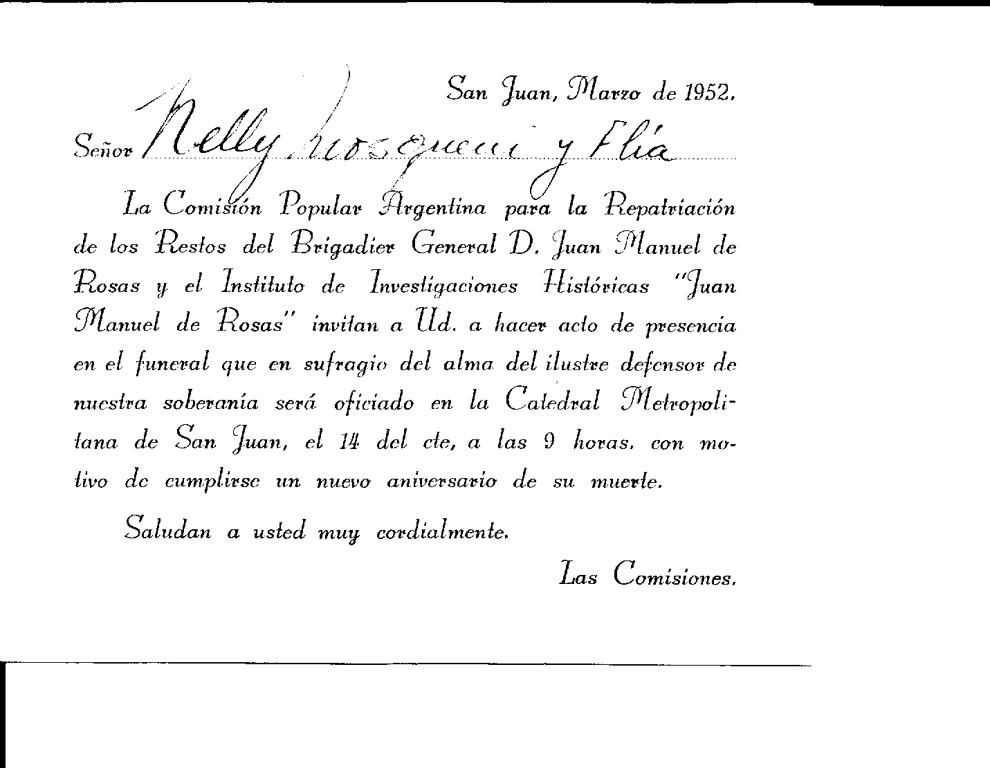 San Juan, Marzo de 1952.
Señor Nelly y Flia
La Comisión Popular Argentina para la Repatriación
de los Restos del Brigadier General D. Juan Manuel de
Rosas y el Instituto de Investigaciones Históricas "Juan
Manuel de Rosas" invitan a Ud. a hacer acto de presencia
en el funeral que en sufragio del alma del ilustre defensor de
nuestra soberanía será oficiado en la Catedral Metropoli-
tana de San Juan, el 14 del cte, a las 9 horas. con mo-
tivo de cumplirse un nuevo aniversario de su muerte.
Saludan a usted muy cordialmente.
Las Comisiones.